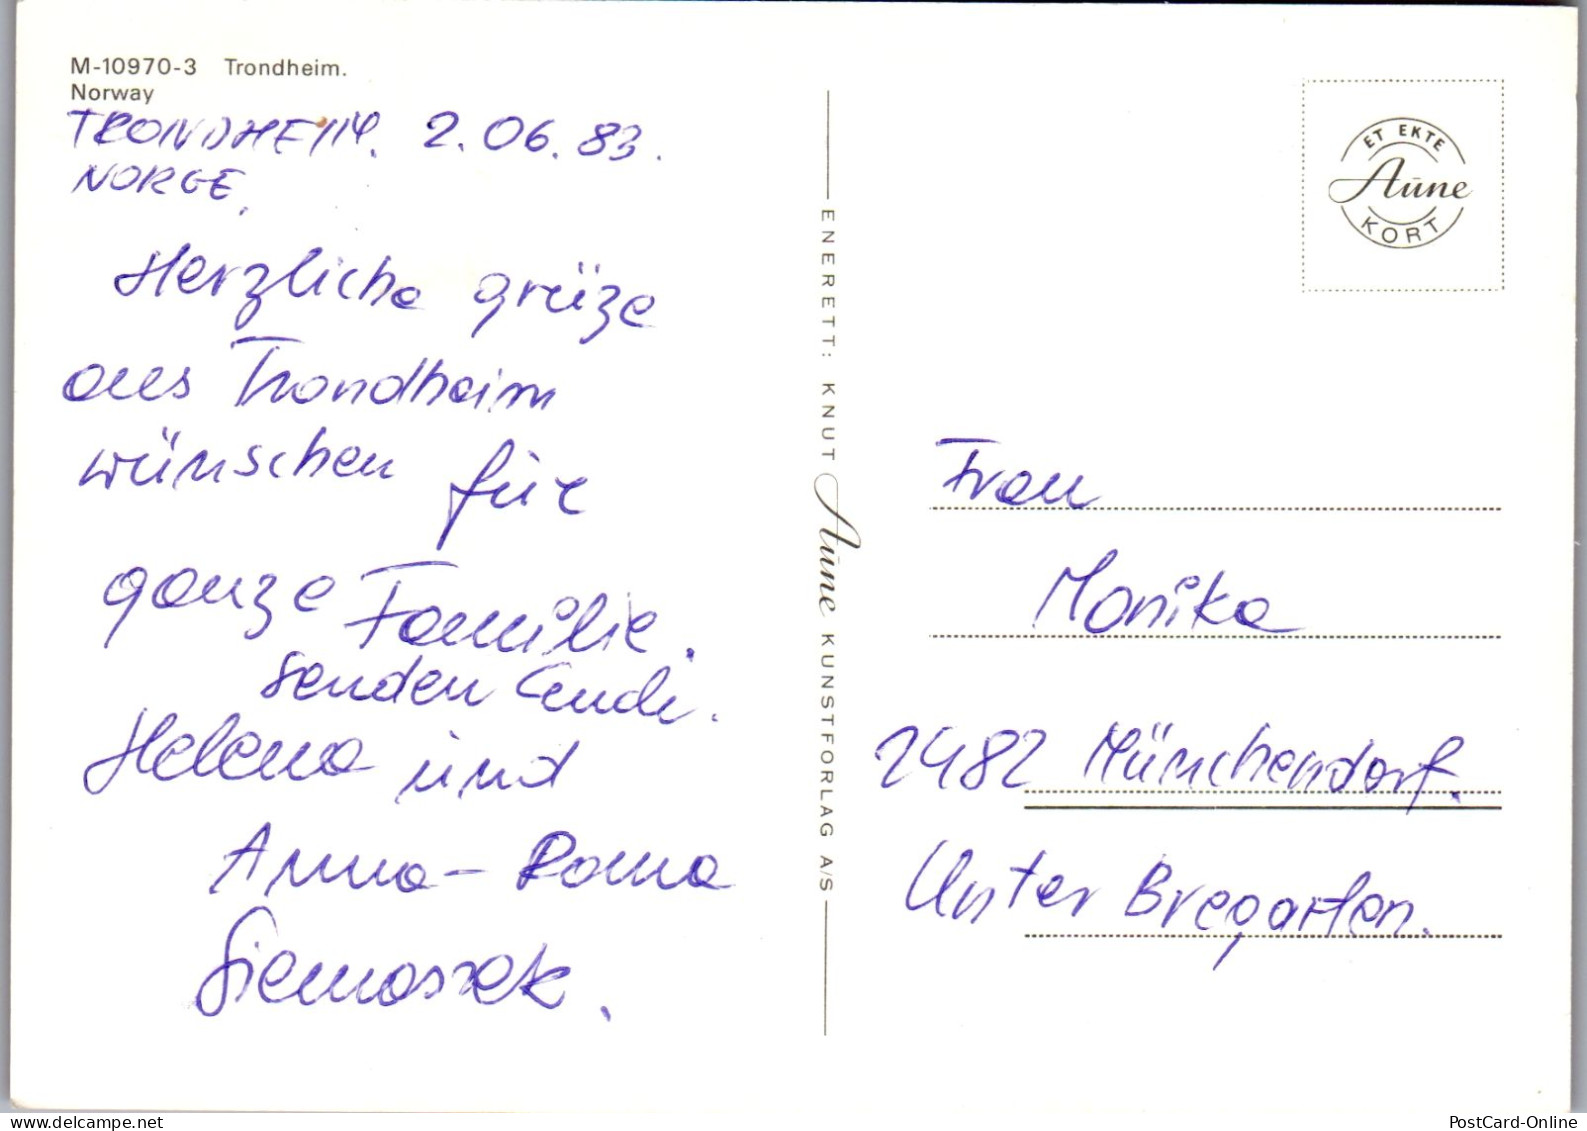 M-10970-3 Trondheim.
Norway
TRONDHEIM. 2.06.83.
NORGE.
Herzliche grüze
aus Trondheim
wünschen für
ganze Familie.
senden Cudi.
Helena und
Anna-Roma
Siemaszek.
ENERETT: KNUT Aune KUNSTFORLAG A/S
ET EKTE
Aune
KORT
Frau
Monika
2482 Münchendorf.
Unter Bregarten.
PostCard-Online
delcampe.net